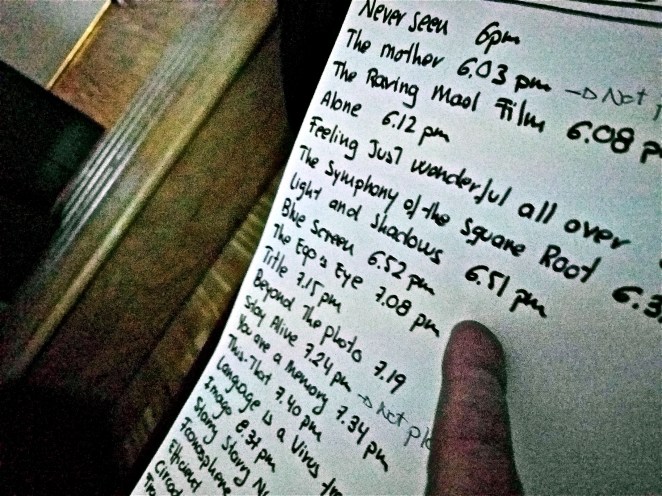 Never seen 6pm
The mother 6.03 pm → Not
The Raving Mad Film 6.08
Alone 6.12 pm
Feeling Just wonderful all over
The Symphony of the Square Root 6.3
Light and Shadows 6.51 pm
Blue Screen 6.52 pm
The Ego's Eye 7.08 pm
Title 7.15 pm
Beyond The photo 7.19
Stay Alive 7.24 pm → Not
You are a memory 7.34 pm
This. That 7.40 pm
Language is a Virus
Image 8.37 pm
Starry Starry
Iconosphere
Efficient